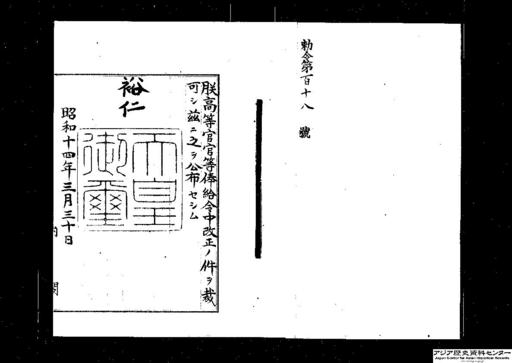 勅令第百十八號
朕高等官官等俸給令中改正ノ件ヲ裁
可シ茲ニ之ヲ公布セシム
裕仁
天皇
御璽
昭和十四年三月三十日
内閣
アジア歴史資料センター
Japan Center for Asian Historical Records